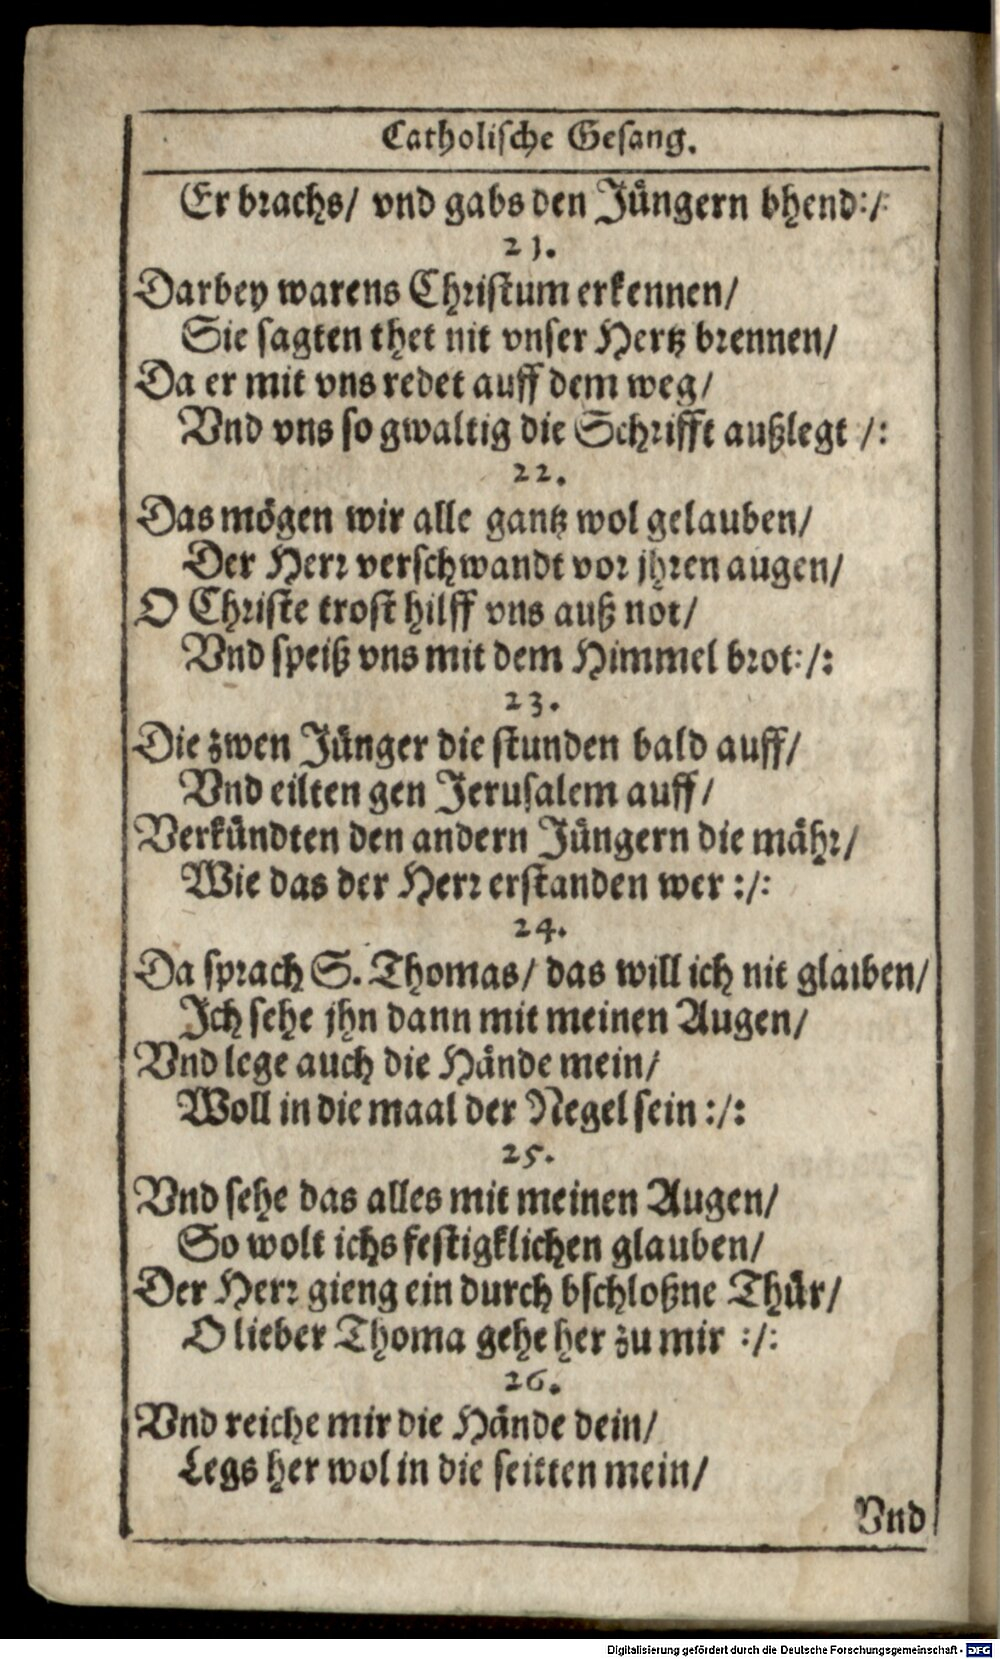 Catholische Gesang.
Er brachs/ vnd gabs den Jüngern bhend:/:
21.
Darbey warens Christum erkennen/
Sie sagten thet nit vnser Hertz brennen/
Da er mit vns redet auff dem weg/
Vnd vns so gwaltig die Schrifft außlegt /:
22.
Das mögen wir alle gantz wol gelauben/
Der Herr verschwandt vor jhren augen/
O Christe trost hilff vns auß not/
Vnd speiß vns mit dem Himmel brot:/:
23.
Die zwen Jünger die stunden bald auff/
Vnd eilten gen Jerusalem auff/
Verkündten den andern Jüngern die mähr/
Wie das der Herr erstanden wer :/:
24.
Da sprach S. Thomas/ das will ich nit glauben/
Ich sehe jhn dann mit meinen Augen/
Vnd lege auch die Hände mein/
Woll in die maal der Negel sein :/:
25.
Vnd sehe das alles mit meinen Augen/
So wolt ichs festigklichen glauben/
Der Herr gieng ein durch bschloßne Thür/
O lieber Thoma gehe her zu mir :/:
26.
Vnd reiche mir die Hände dein/
Legs her wol in die seitten mein/
Vnd
Digitalisierung gefördert durch die Deutsche Forschungsgemeinschaft - DFG